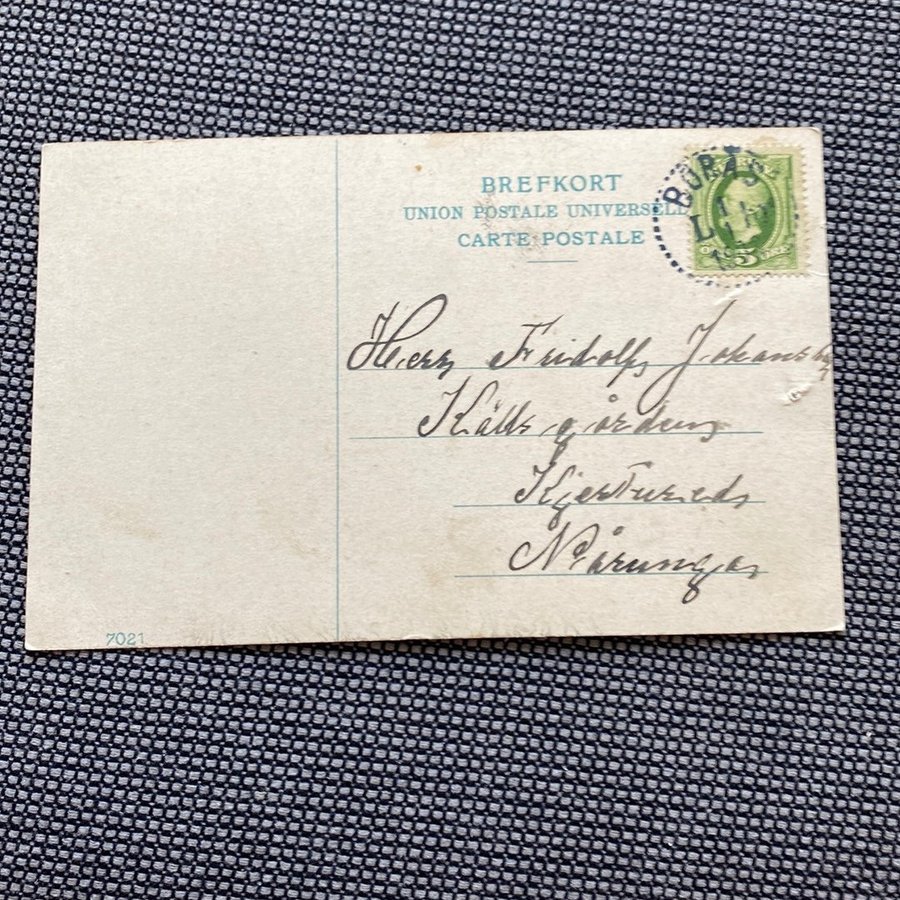 BREFKORT
UNION POSTALE UNIVERSELL
CARTE POSTALE
BORÅS
5
Herr Fridolf Johansson
Källsgården
Nårunga
7021